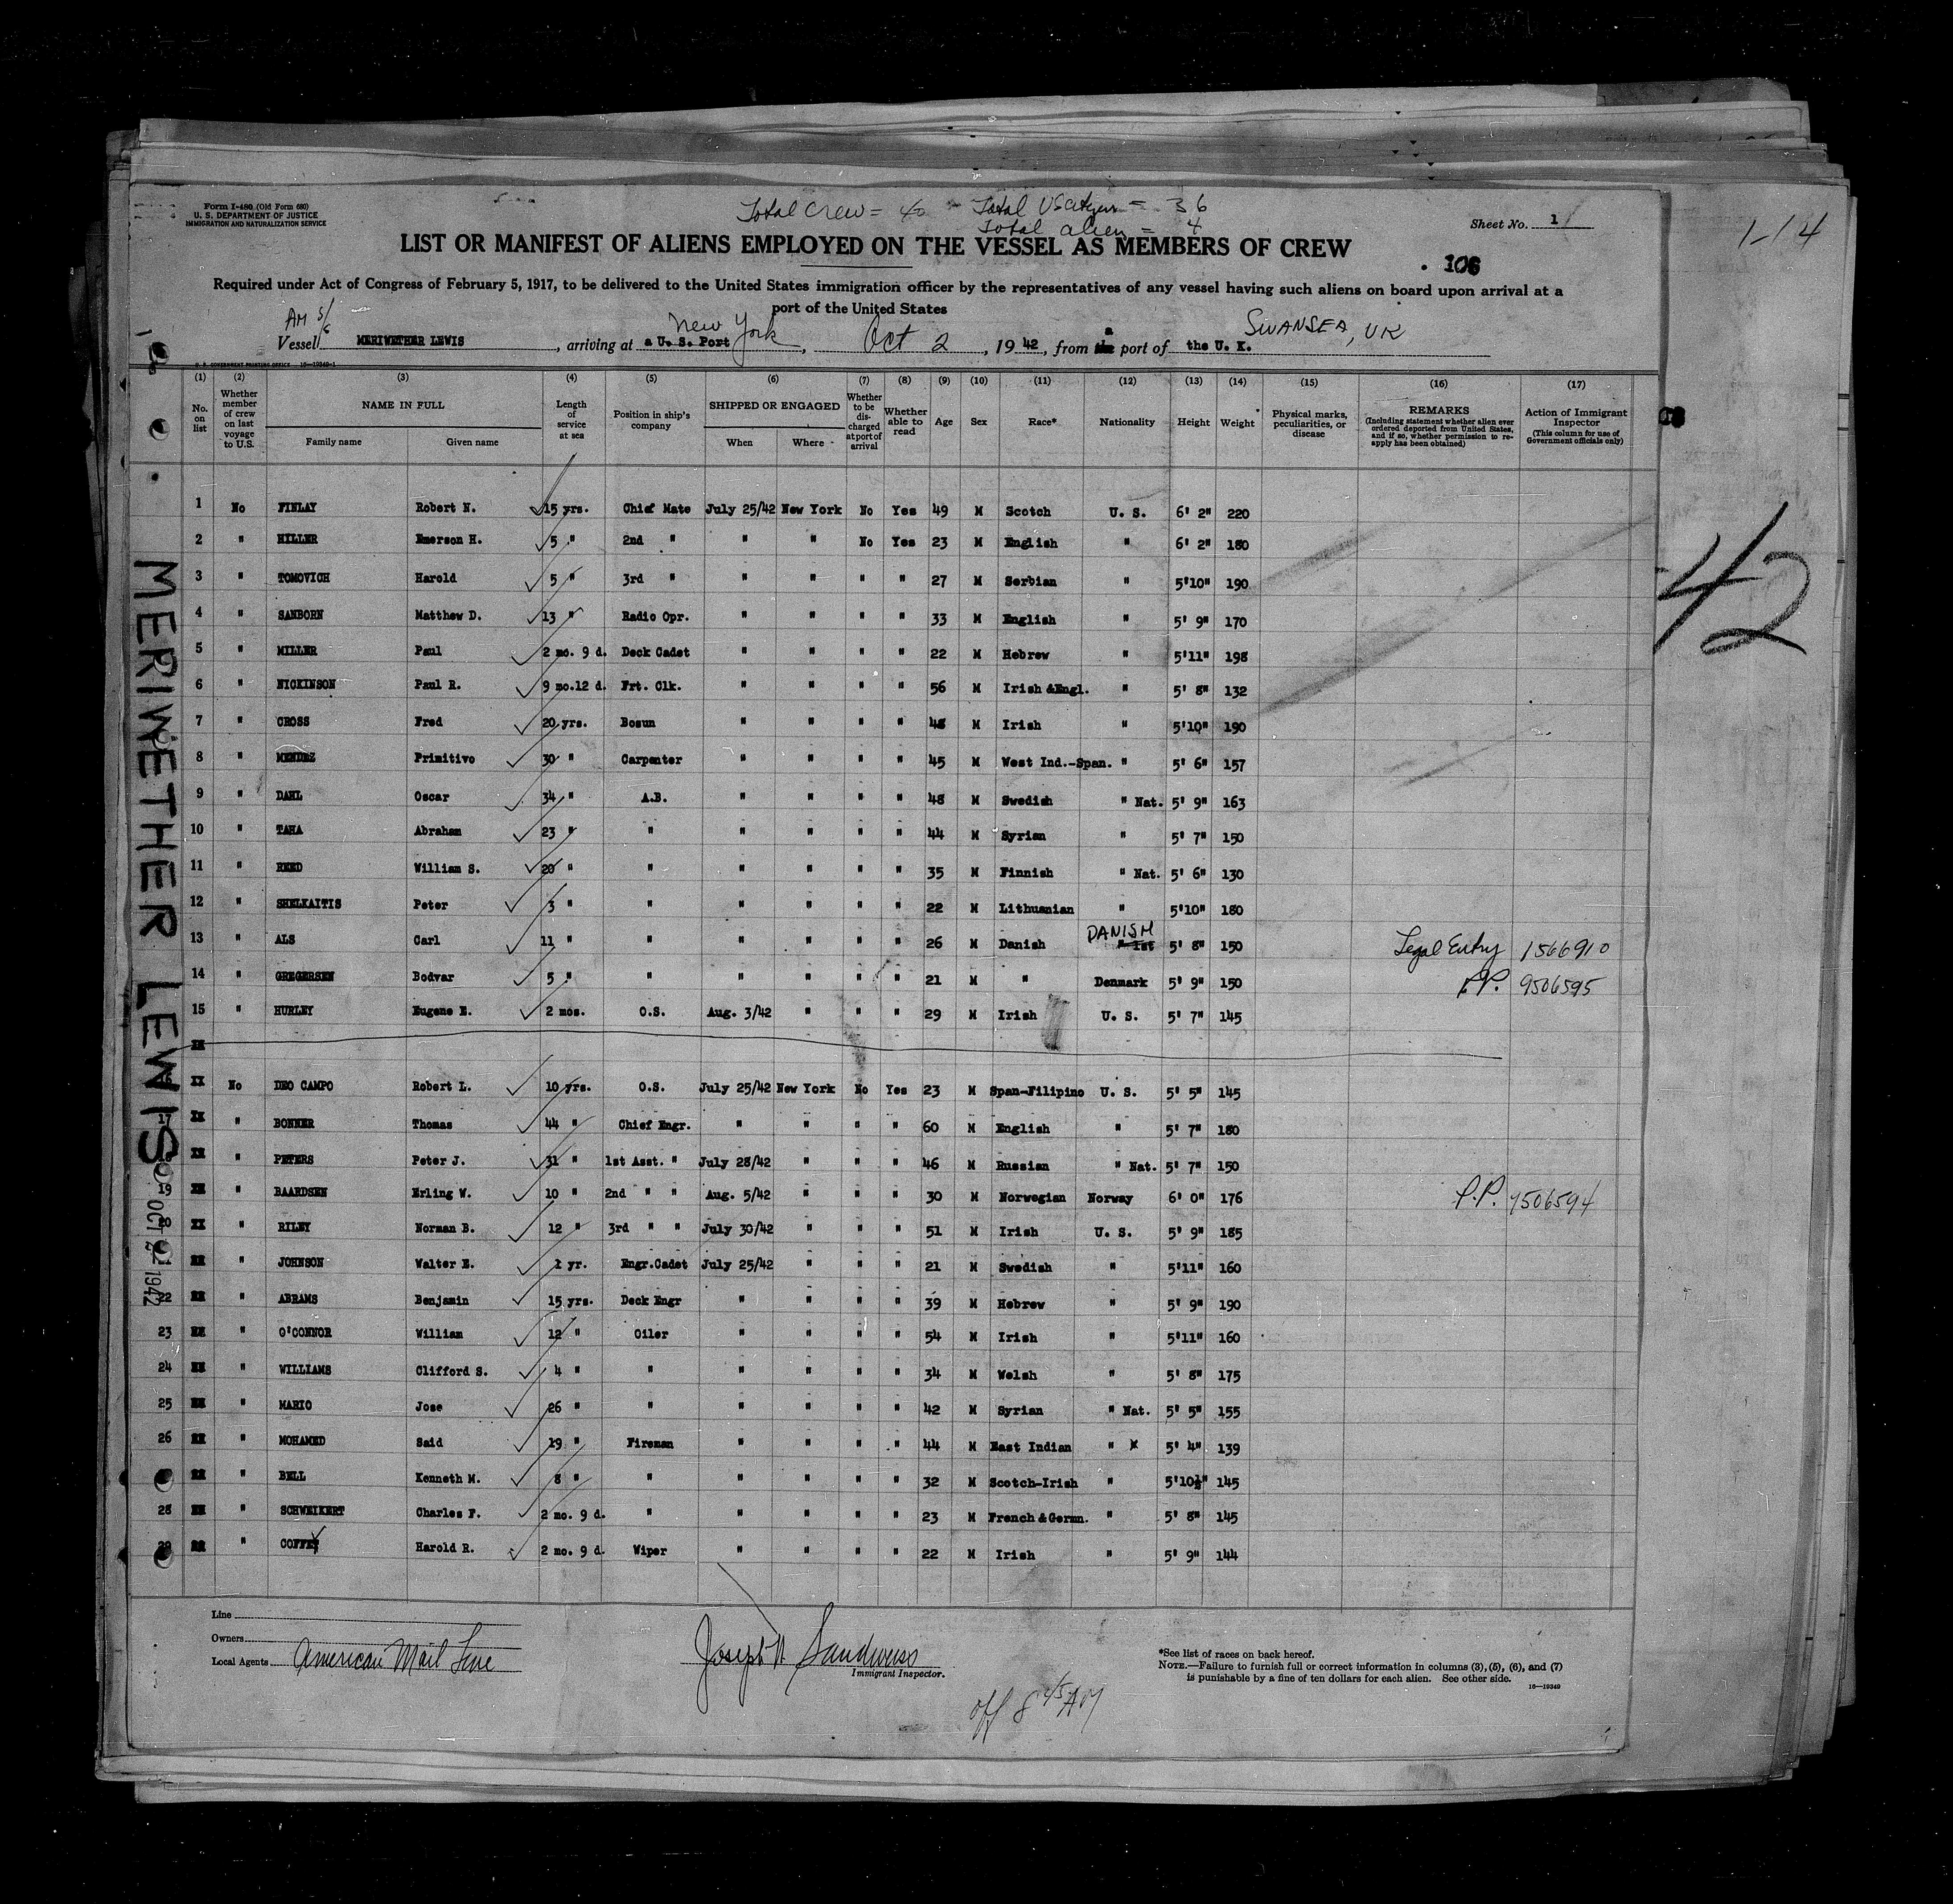 Form I-480 (Old Form 680)
U. S. DEPARTMENT OF JUSTICE
IMMIGRATION AND NATURALIZATION SERVICE
Total Crew = 40 - Total US citizen = 36
Total alien = 4
Sheet No. 1
1-14
LIST OR MANIFEST OF ALIENS EMPLOYED ON THE VESSEL AS MEMBERS OF CREW
106
Required under Act of Congress of February 5, 1917, to be delivered to the United States immigration officer by the representatives of any vessel having such aliens on board upon arrival at a
port of the United States
AM S/S New York a SWANSEA, UK
Vessel MERIWETHER LEWIS, arriving at a U. S. Port, Oct 2, 1942, from the port of the U. K.
U. S. GOVERNMENT PRINTING OFFICE 16-19349-1
(1) (2) (3) (4) (5) (6) (7) (8) (9) (10) (11) (12) (13) (14) (15) (16) (17)
No. on list
Whether member of crew on last voyage to U.S.
NAME IN FULL
Family name Given name
Length of service at sea
Position in ship's company
SHIPPED OR ENGAGED
When Where
Whether to be discharged at port of arrival
Whether able to read
Age
Sex
Race*
Nationality
Height
Weight
Physical marks, peculiarities, or disease
REMARKS
(Including statement whether alien ever ordered deported from United States, and if so, whether permission to reapply has been obtained)
Action of Immigrant Inspector
(This column for use of Government officials only)
1 No FINLAY Robert N. 15 yrs. Chief Mate July 25/42 New York No Yes 49 M Scotch U. S. 6' 2" 220
2 " HILLER Emerson H. 5 " 2nd " " " No Yes 23 M English " 6' 2" 180
3 " TOMOVICH Harold 5 " 3rd " " " " " 27 M Serbian " 5'10" 190
4 " SANBORN Matthew D. 13 " Radio Opr. " " " " 33 M English " 5' 9" 170
5 " MILLER Paul 2 mo. 9 d. Deck Cadet " " " " 22 M Hebrew " 5'11" 198
6 " NICKINSON Paul R. 9 mo.12 d. Frt. Clk. " " " " 56 M Irish &Engl. " 5' 8" 132
7 " CROSS Fred 20 yrs. Bosun " " " " 48 M Irish " 5'10" 190
8 " MENDEZ Primitivo 30 " Carpenter " " " " 45 M West Ind.-Span. " 5' 6" 157
9 " DAHL Oscar 34 " A.B. " " " " 48 M Swedish " Nat. 5' 9" 163
10 " TAHA Abraham 23 " " " " " " 44 M Syrian " 5' 7" 150
11 " REED William S. 20 " " " " " " 35 M Finnish " Nat. 5' 6" 130
12 " SHELKAITIS Peter 3 " " " " " " 22 M Lithuanian " 5'10" 180
13 " ALS Carl 11 " " " " " " 26 M Danish DANISH " 1st 5' 8" 150 Legal Entry 1566910
14 " GREGERSEN Bodvar 5 " " " " " " 21 M " Denmark 5' 9" 150 P.P. 9506595
15 " HURLEY Eugene E. 2 mos. O.S. Aug. 3/42 " " " 29 M Irish U. S. 5' 7" 145
16 No DEO CAMPO Robert L. 10 yrs. O.S. July 25/42 New York No Yes 23 M Span-Filipino U. S. 5' 5" 145
17 " BONNER Thomas 44 " Chief Engr. " " " " 60 M English " 5' 7" 180
18 " PETERS Peter J. 31 " 1st Asst. " July 28/42 " " " 46 M Russian " Nat. 5' 7" 150
19 " BAARDSEN Erling W. 10 " 2nd " " Aug. 5/42 " " " 30 M Norwegian Norway 6' 0" 176 P.P. 9506594
20 " RILEY Norman B. 12 " 3rd " " July 30/42 " " " 51 M Irish U. S. 5' 9" 185
" JOHNSON Walter E. 1 yr. Engr.Cadet July 25/42 " " " 21 M Swedish " 5'11" 160
22 " ABRAMS Benjamin 15 yrs. Deck Engr " " " " 39 M Hebrew " 5' 9" 190
23 " O'CONNOR William 12 " Oiler " " " " 54 M Irish " 5'11" 160
24 " WILLIAMS Clifford S. 4 " " " " " " 34 M Welsh " 5' 8" 175
25 " MARIO Jose 26 " " " " " " 42 M Syrian " Nat. 5' 5" 155
26 " MOHAMED Said 19 " Fireman " " " " 44 M East Indian " 5' 4" 139
" BELL Kenneth M. 8 " " " " " " 32 M Scotch-Irish " 5'10½" 145
28 " SCHWEIKERT Charles F. 2 mo. 9 d. " " " " " 23 M French &Germn. " 5' 8" 145
29 " COFFEY Harold R. 2 mo. 9 d. Wiper " " " " 22 M Irish " 5' 9" 144
MERIWETHER LEWIS
OCT 2 1942
42
Line
Owners
Local Agents American Mail Line
Joseph N Sandweiss
Immigrant Inspector.
off 8 45 AM
*See list of races on back hereof.
NOTE.—Failure to furnish full or correct information in columns (3), (5), (6), and (7)
is punishable by a fine of ten dollars for each alien. See other side.
16-19349